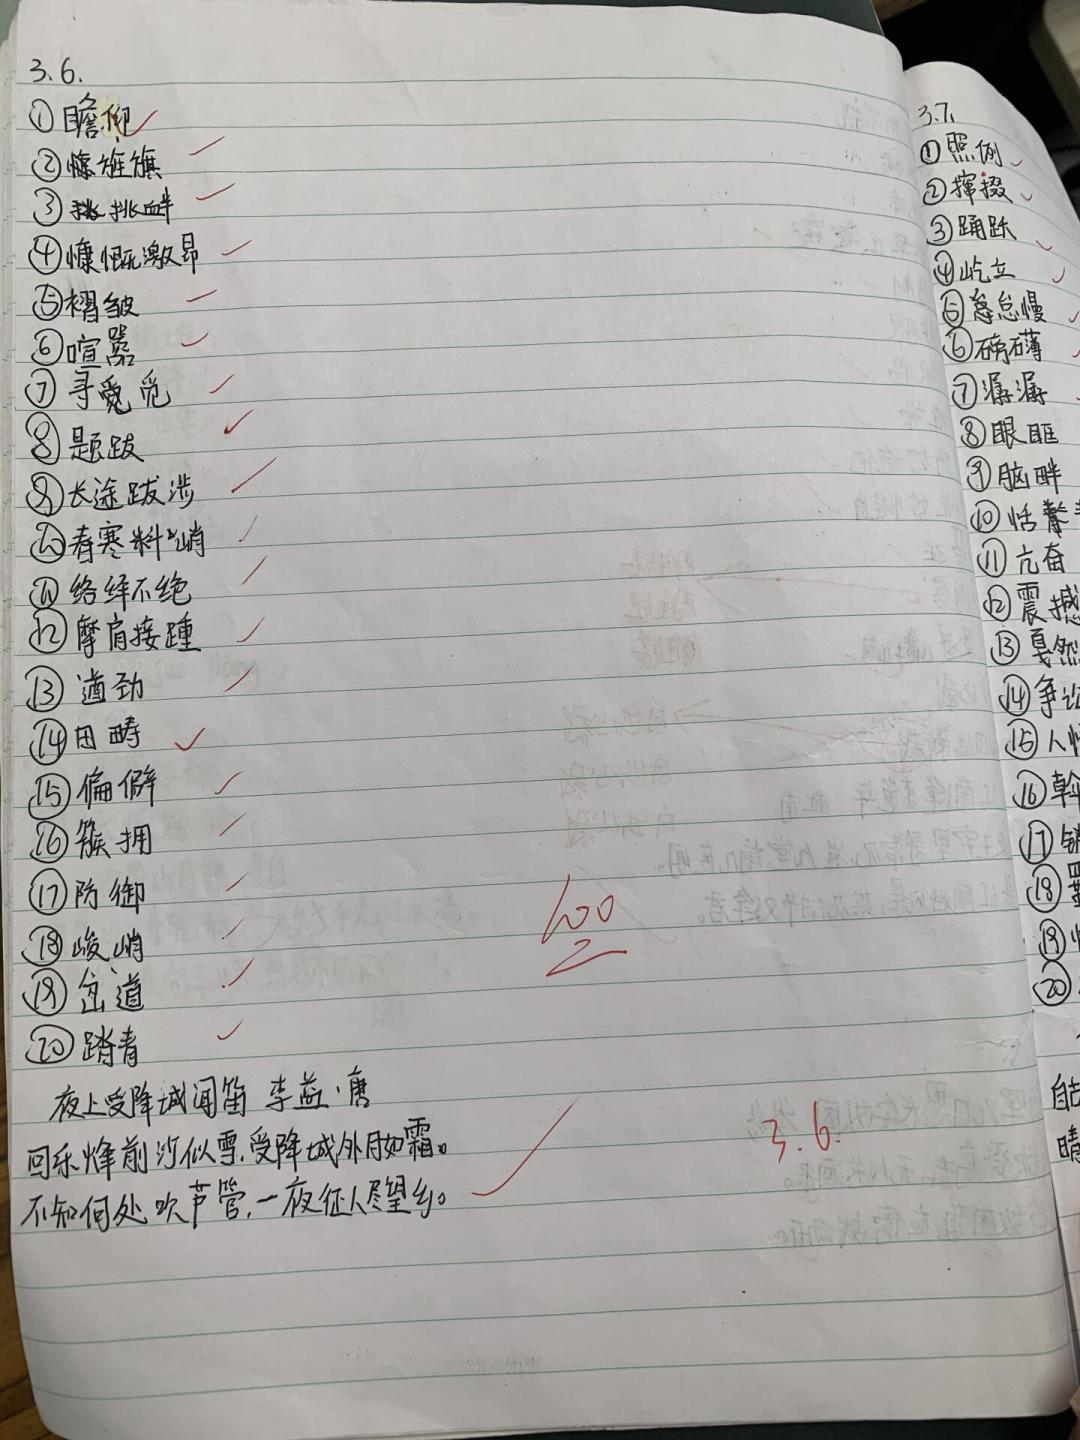 3.6.
①瞻仰
②旌旗
③挑衅
④慷慨激昂
⑤褶皱
⑥喧嚣
⑦寻觅
⑧题跋
⑨长途跋涉
⑩春寒料峭
⑪络绎不绝
⑫摩肩接踵
⑬遒劲
⑭田畴
⑮偏僻
⑯簇拥
⑰防御
⑱峻峭
⑲岔道
⑳踏青
夜上受降城闻笛 李益·唐
回乐烽前沙似雪,受降城外月如霜。
不知何处吹芦管,一夜征人尽望乡。
100
3.6.
3.7.
①照例
②撺掇
③踊跃
④屹立
⑤怠慢
⑥磅礴
⑦潺潺
⑧眼眶
⑨脑畔
⑩恬
⑪亢奋
⑫震撼
⑬戛然
⑭争
⑮人
⑯斡
⑰销
⑱
⑲
⑳
晴